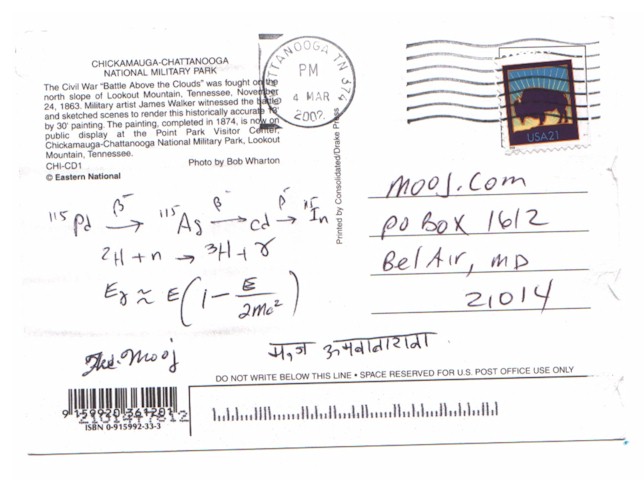 CHICKAMAUGA-CHATTANOOGA
NATIONAL MILITARY PARK
The Civil War "Battle Above the Clouds" was fought on the
north slope of Lookout Mountain, Tennessee, November
24, 1863. Military artist James Walker witnessed the battle
and sketched scenes to render this historically accurate 13'
by 30' painting. The painting, completed in 1874, is now on
public display at the Point Park Visitor Center,
Chickamauga-Chattanooga National Military Park, Lookout
Mountain, Tennessee.
CHI-CD1 Photo by Bob Wharton
© Eastern National
CHATTANOOGA TN 374
PM
4 MAR
2002
USA21
Printed by Consolidated/Drake Press
115Pd β- → 115Ag β- → cd β- → 115In
2H + n → 3H + γ
Eγ ≈ E(1 - E/2mc²)
mooj.com
PO BOX 1612
Bel Air, MD
21014
DO NOT WRITE BELOW THIS LINE • SPACE RESERVED FOR U.S. POST OFFICE USE ONLY
ISBN 0-915992-33-3